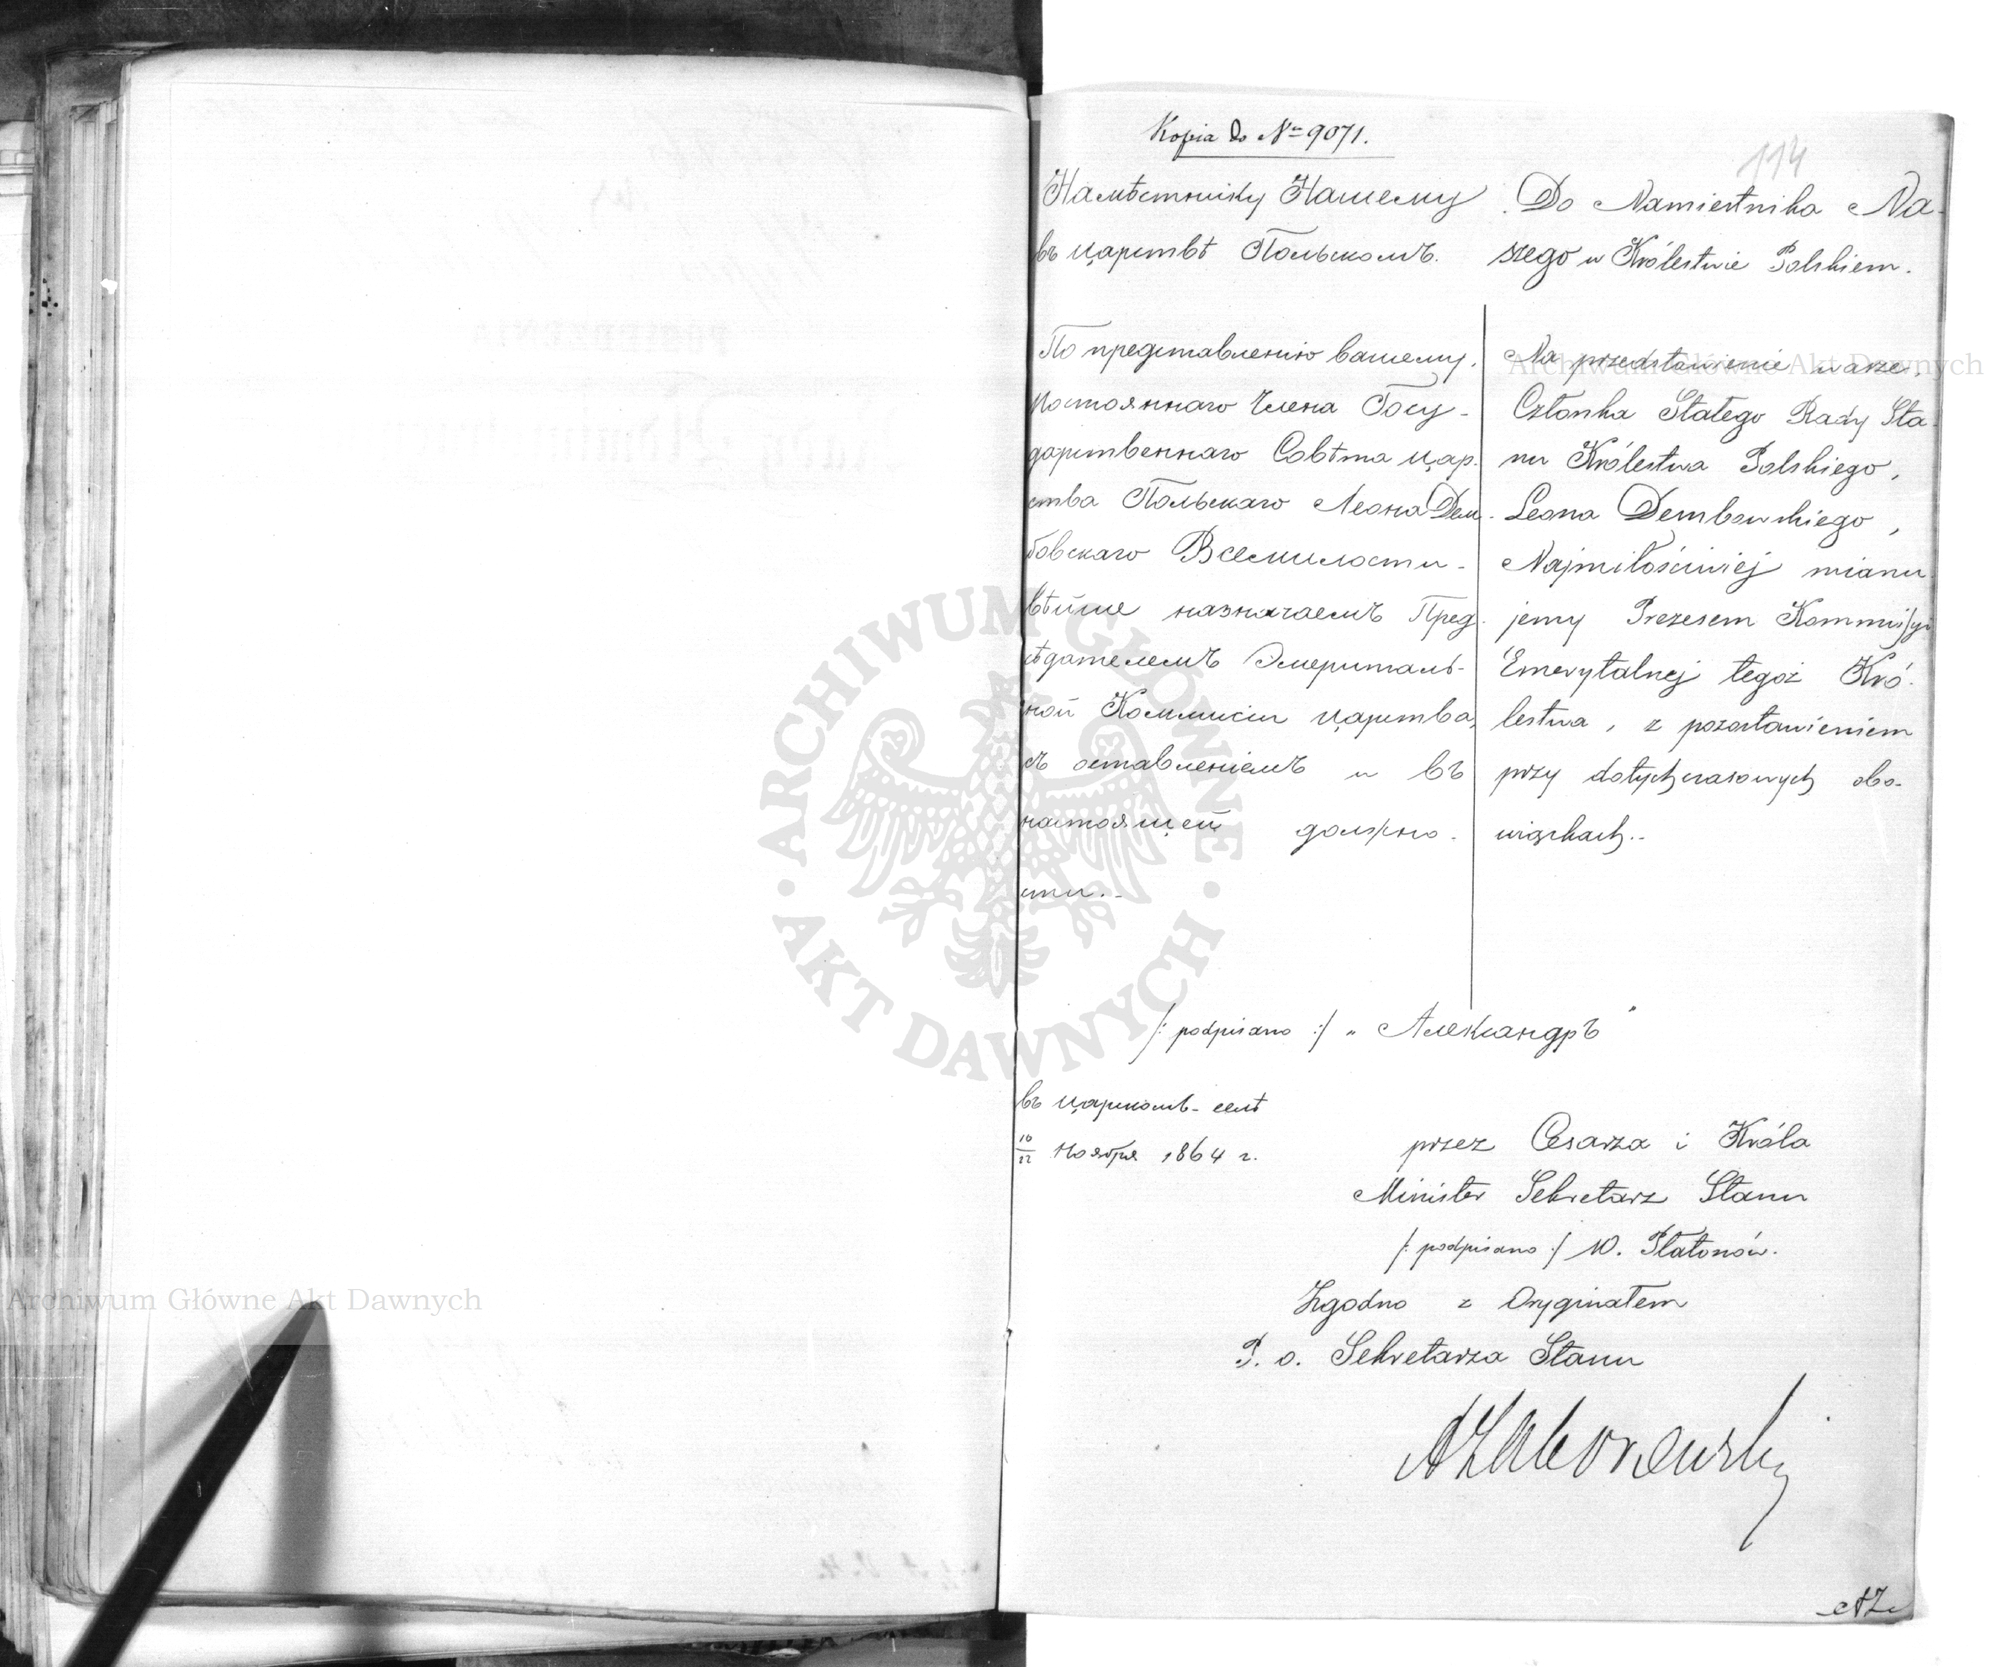 Kopia do № 9071.
114
Намѣстнику Нашему
въ царствѣ Польскомъ.
По представленію вашему,
постояннаго Члена Госу-
дарственнаго Совѣта цар-
ства Польскаго Леона Дем-
бовскаго Всемилости-
вѣйше назначаемъ Пред-
сѣдателемъ Эмериталь-
ной Коммисіи царства,
съ оставленіемъ и въ
настоящей должно-
сти.-
Do Namiestnika Na-
szego w Królestwie Polskiem.
Na przedstawienie wasze,
Członka Stałego Rady Sta-
nu Królestwa Polskiego,
Leona Dembowskiego,
Najmiłościwiej mianu-
jemy Prezesem Kommissyi
Emerytalnej tegoż Kró-
lestwa, z pozostawieniem
przy dotychczasowych obo-
wiązkach.-
/: podpisano :/ „ Александръ "
въ царскомъ-селѣ
10/22 Ноября 1864 г.
przez Cesarza i Króla
Minister Sekretarz Stanu
/: podpisano :/ W. Płatonów.
Zgodno z Oryginałem
P. o. Sekretarza Stanu
AZ
Archiwum Główne Akt Dawnych
Archiwum Główne Akt Dawnych
ARCHIWUM GŁÓWNE · AKT DAWNYCH ·